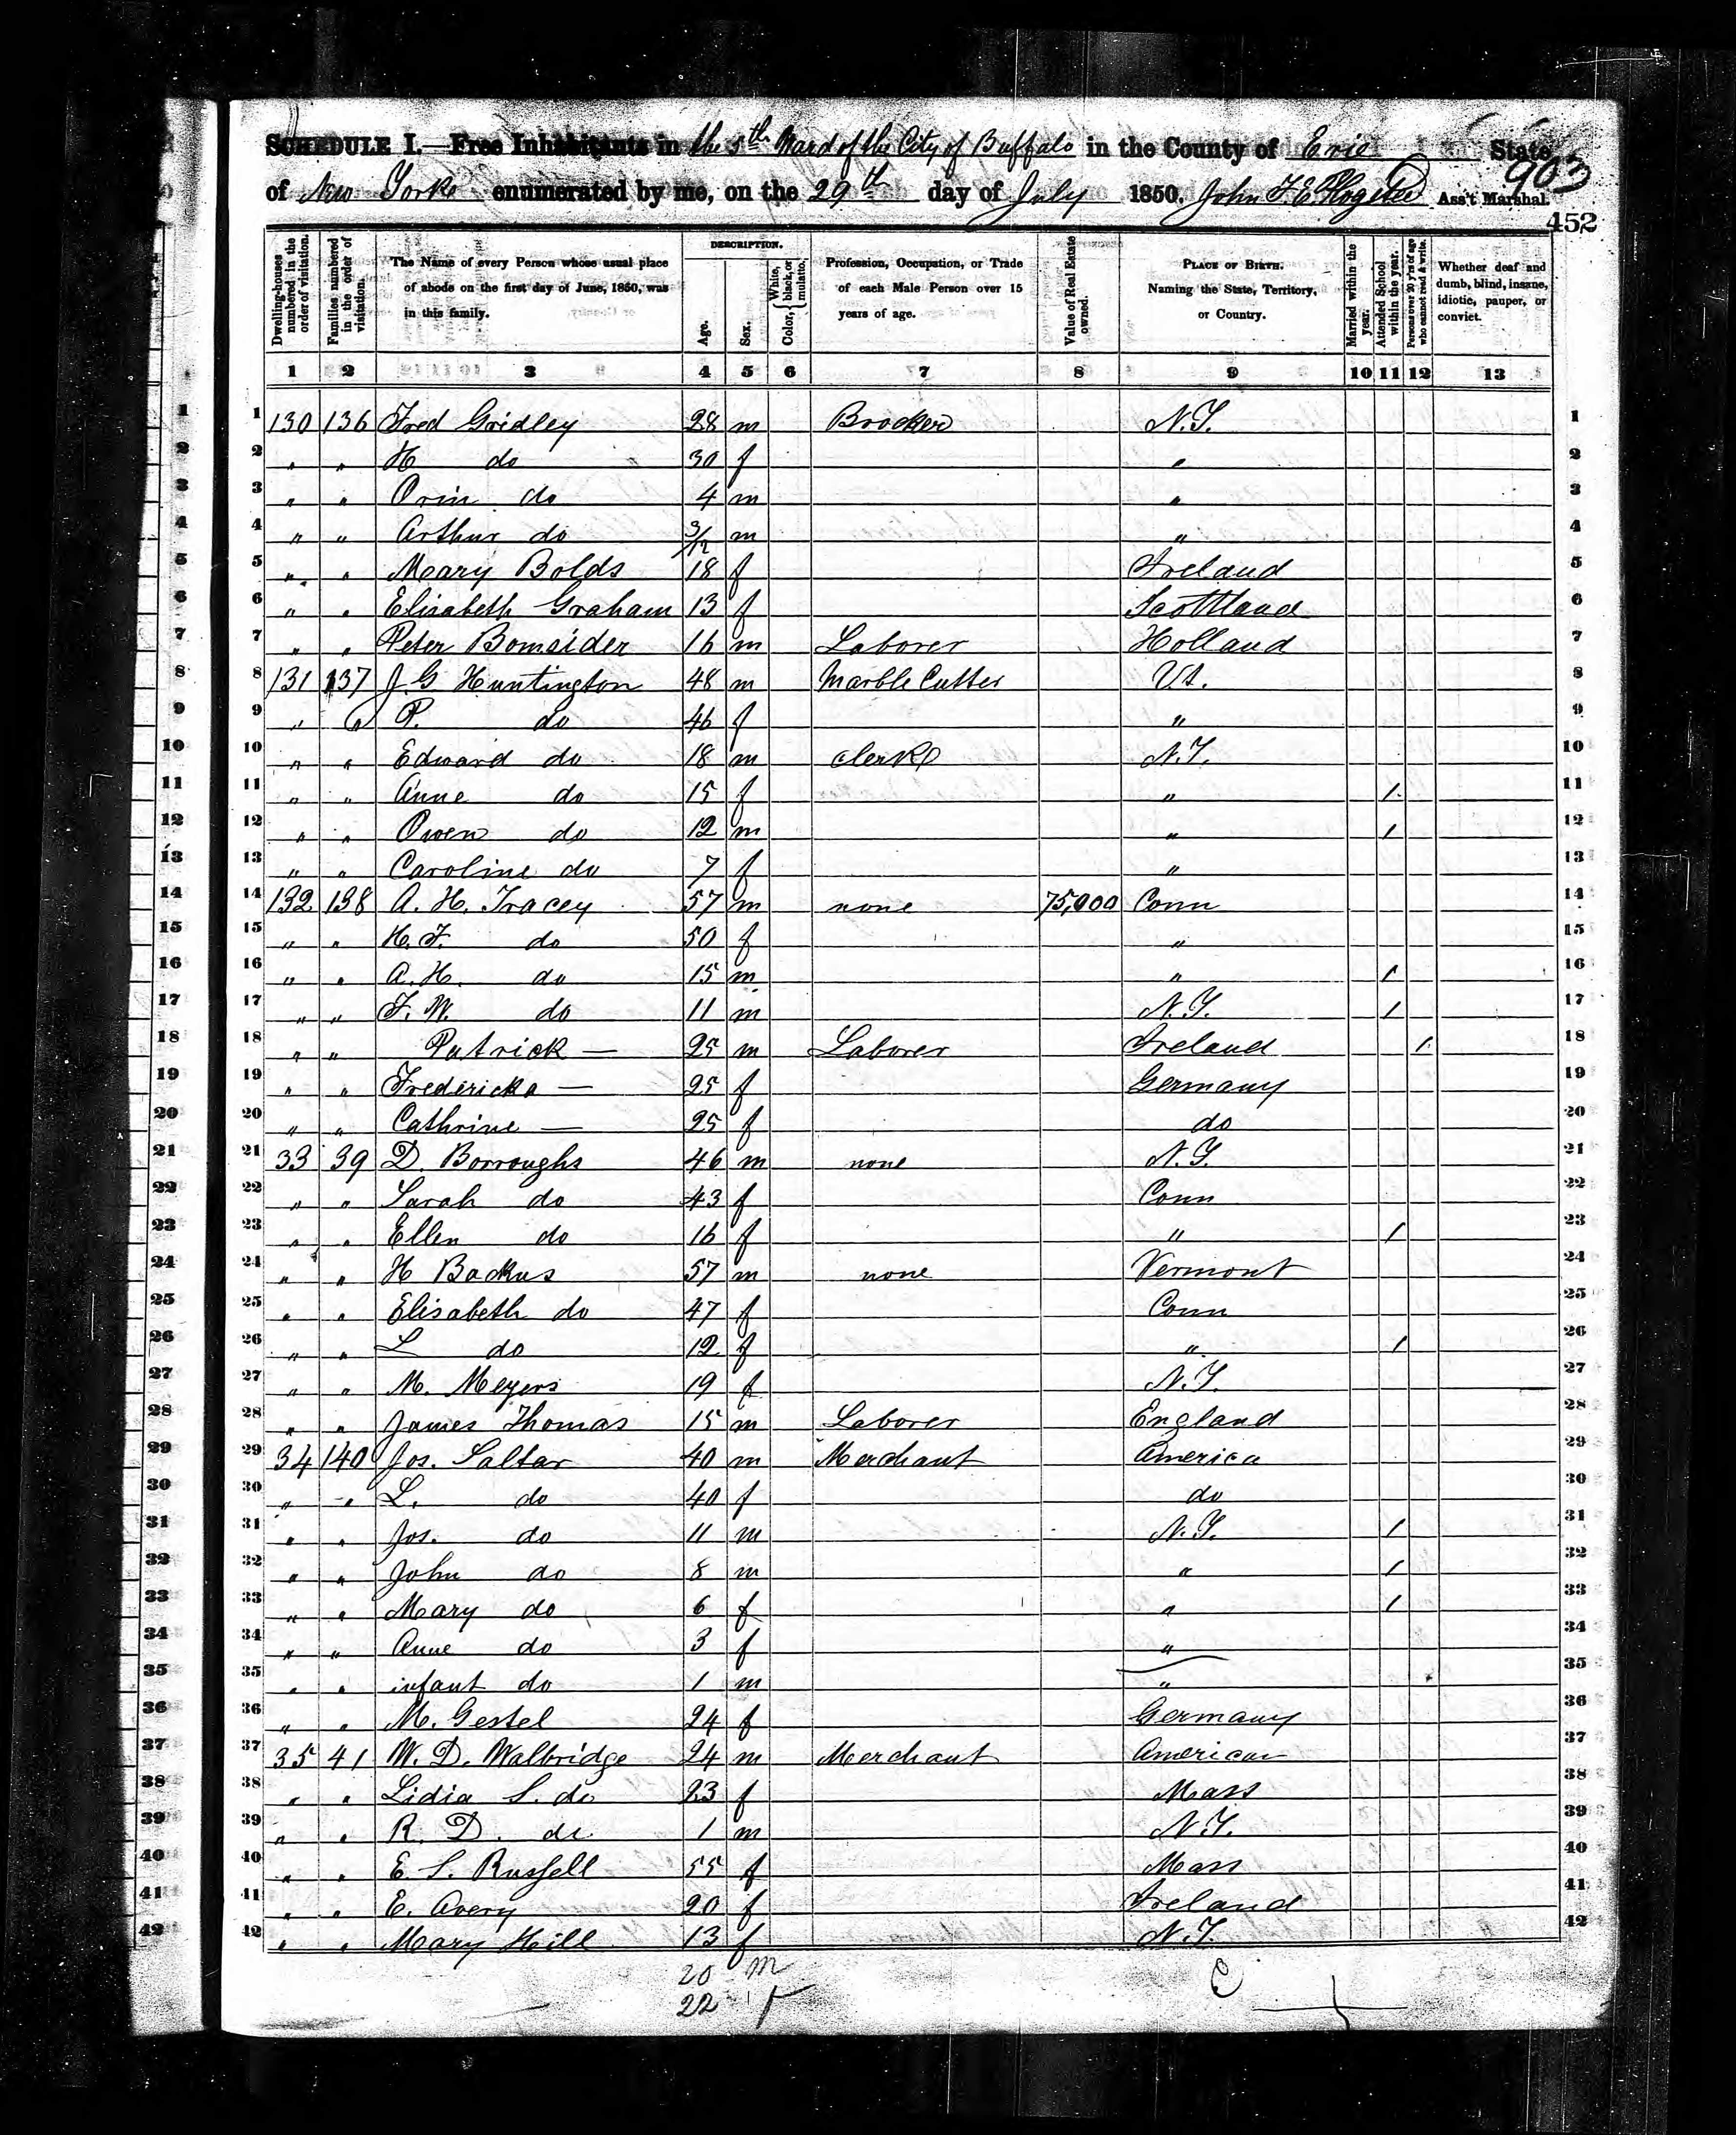 SCHEDULE I.—Free Inhabitants in the 5th Ward of the City of Buffalo in the County of Erie State
of New York enumerated by me, on the 29th day of July 1850. John F. E. Ass't Marshal.
903
452
Dwelling-houses numbered in the order of visitation.
Families numbered in the order of visitation.
The Name of every Person whose usual place of abode on the first day of June, 1850, was in this family.
DESCRIPTION.
Age.
Sex.
Color, { White, black, or mulatto.
Profession, Occupation, or Trade of each Male Person over 15 years of age.
Value of Real Estate owned.
PLACE OF BIRTH. Naming the State, Territory, or Country.
Married within the year.
Attended School within the year.
Persons over 20 y'rs of age who cannot read & write.
Whether deaf and dumb, blind, insane, idiotic, pauper, or convict.
1 2 3 4 5 6 7 8 9 10 11 12 13
1 130 136 Fred Gridley 28 m Brocker N.Y. 1
2 " " H do 30 f " 2
3 " " Orin do 4 m " 3
4 " " Arthur do 3/12 m " 4
5 " " Mary Bolds 18 f Ireland 5
6 " " Elisabeth Graham 13 f Scottland 6
7 " " Peter Bomsider 16 m Laborer Holland 7
8 131 137 J G Huntington 48 m Marble Cutter Vt. 8
9 " " P. do 46 f " 9
10 " " Edward do 18 m clerk N.Y. 10
11 " " Anne do 15 f " 1 11
12 " " Owen do 12 m " 1 12
13 " " Caroline do 7 f " 13
14 132 138 A. H. Tracey 57 m none 75,000 Conn 14
15 " " H. F. do 50 f " 15
16 " " A. H. do 15 m " 1 16
17 " " F. W. do 11 m N.Y. 1 17
18 " " Patrick — 25 m Laborer Ireland 1 18
19 " " Fredericka — 25 f Germany 19
20 " " Cathrine — 25 f do 20
21 33 39 D. Borroughs 46 m none N.Y. 21
22 " " Sarah do 43 f Conn 22
23 " " Ellen do 16 f " 1 23
24 " " H Backus 57 m none Vermont 24
25 " " Elisabeth do 47 f Conn 25
26 " " L do 12 f " 1 26
27 " " M. Meyers 19 f N.Y. 27
28 " " James Thomas 15 m Laborer England 28
29 34 140 Jos. Saltar 40 m Merchant America 29
30 " " L. do 40 f do 30
31 " " Jos. do 11 m N.Y. 1 31
32 " " John do 8 m " 1 32
33 " " Mary do 6 f " 1 33
34 " " Anne do 3 f " 34
35 " " infant do 1 m " 35
36 " " M. Gestel 24 f Germany 36
37 35 41 W. D. Walbridge 24 m Merchant American 37
38 " " Lidia S. do 23 f Mass 38
39 " " R. D. do 1 m N.Y. 39
40 " " E. S. Russell 55 f Mass 40
41 " " E. Avery 20 f Ireland 41
42 " " Mary Hill 13 f N.Y. 42
20 m
22 f